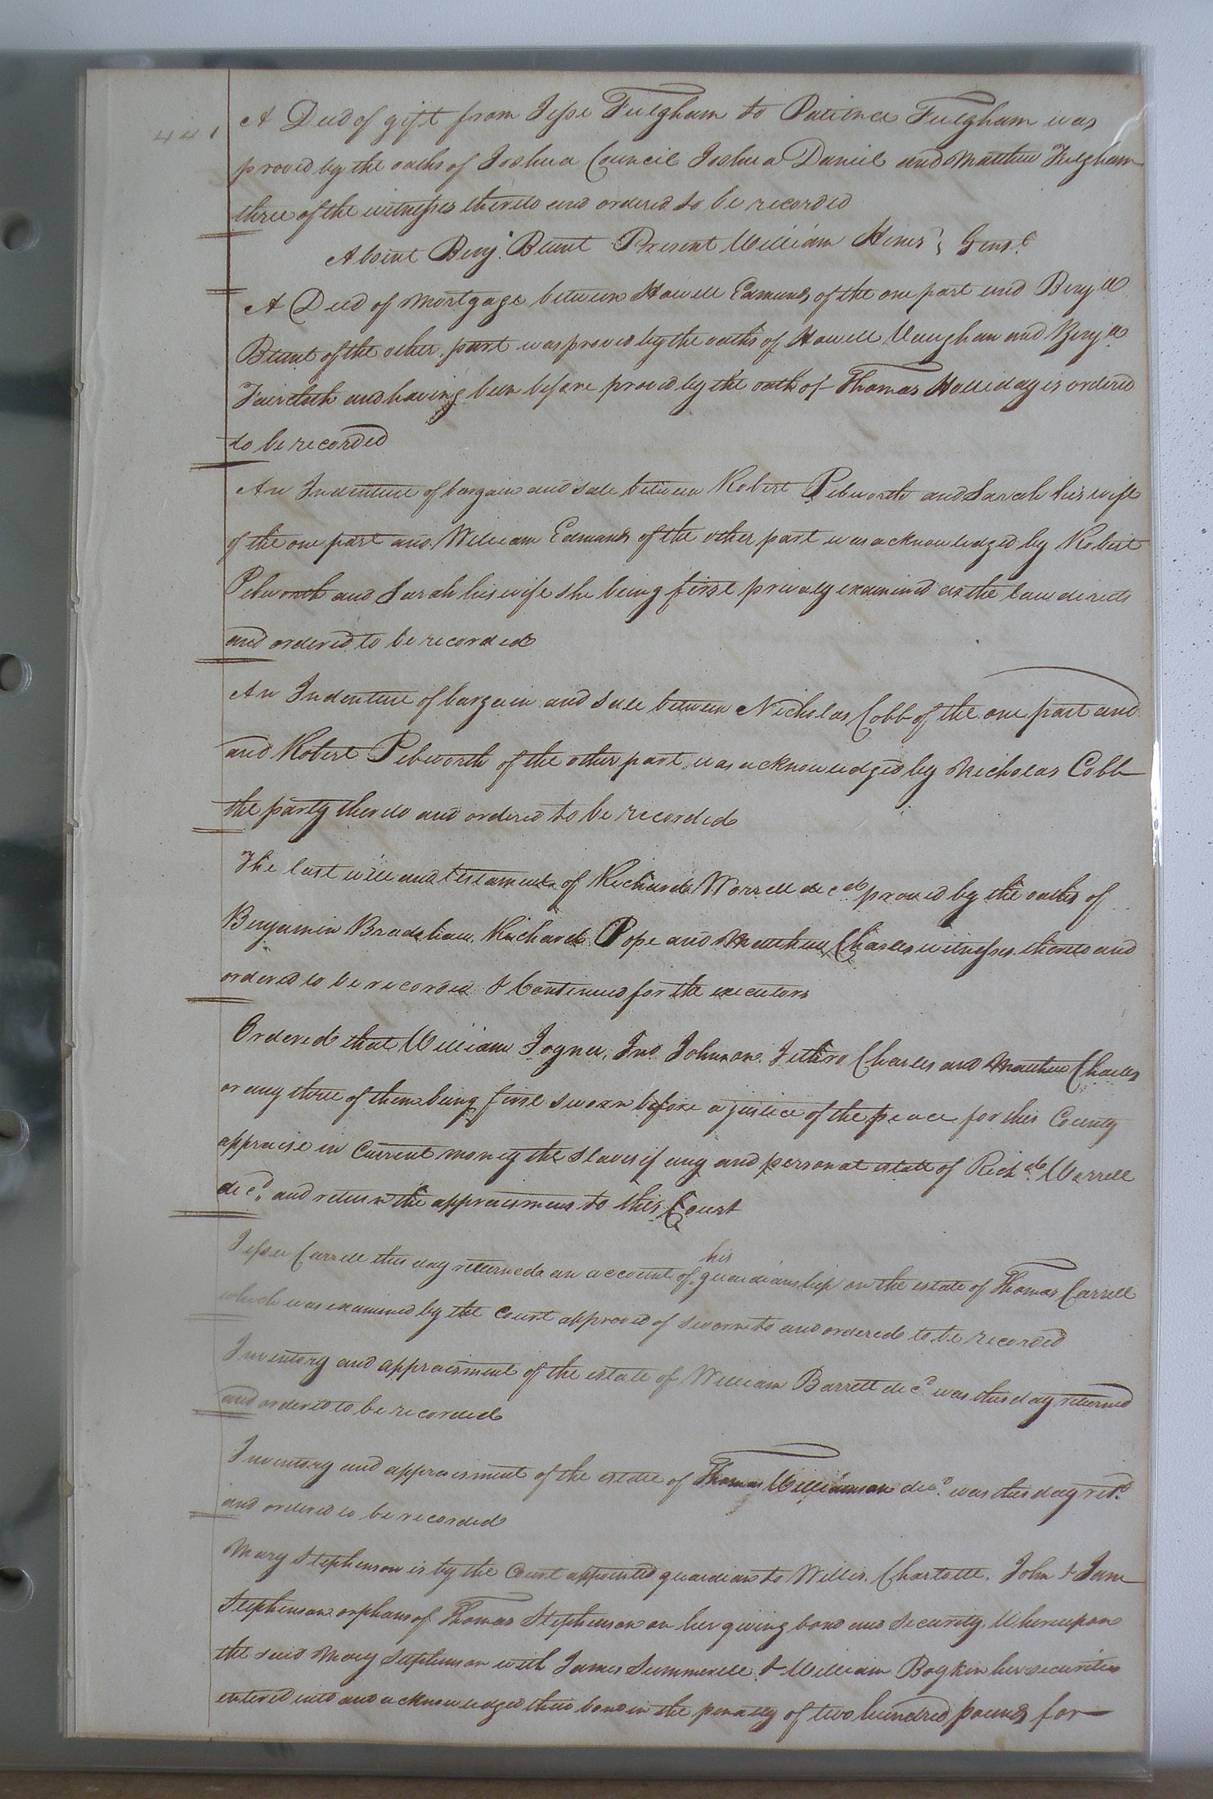 441
A Deed of gift from Jesse Fulgham to Patience Fulgham was
proved by the oaths of Joshua Council Joshua Daniel and Matthew Fulgham
three of the witnesses thereto and ordered to be recorded
Absent Benj. Blunt Present William Hines Gent.
A Deed of Mortgage between Howell Edmunds of the one part and Benja
Blunt of the other part was proved by the oaths of Howell Vaughan and Benja
Faircloth and having been before proved by the oath of Thomas Holliday is ordered
to be recorded
An Indenture of bargain and sale between Robert Pebworth and Sarah his wife
of the one part and William Edmunds of the other part was acknowledged by Robert
Pebworth and Sarah his wife she being first privaly examined as the law directs
and ordered to be recorded
An Indenture of bargain and sale between Nicholas Cobb of the one part and
and Robert Pebworth of the other part was acknowledged by Nicholas Cobb
the party thereto and ordered to be recorded
The last will and testament of Richard Worrell decd proved by the oaths of
Benjamin Bradshaw Richard Pope and Matthew Charles witnesses thereto and
ordered to be recorded & Continued for the executors
Ordered that William Joyner, Jno. Johnson Jethro Charles and Matthew Charles
or any three of them being first sworn before a justice of the peace for this County
appraise in Current money the slaves if any and personal estate of Richd. Worrell
decd. and return the appraisment to this Court
Jesse Carrell this day returned an account of his guardianship on the estate of Thomas Carrell
which was examined by the Court approved of sworn to and ordered to be recorded
Inventory and appraisment of the estate of William Barrett decd. was this day returned
and ordered to be recorded
Inventory and appraisment of the estate of Thomas Williamson decd. was this day retd.
and ordered to be recorded
Mary Stephenson is by the Court appointed guardian to Willis, Charlotte, John & Jane
Stephenson orphans of Thomas Stephenson on her giving bond and security Whereupon
the said Mary Stephenson with James Summerell & William Boykin her securities
entered into and acknowledged their bond in the penalty of two hundred pounds for